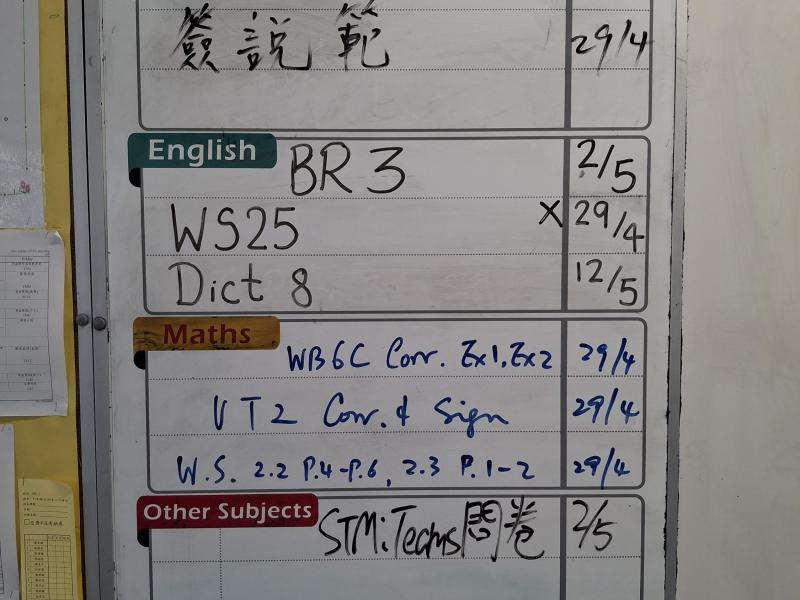 簽說範 29/4
English BR 3 2/5
WS25 X 29/4
Dict 8 12/5
Maths WB6C Corr. Ex1, Ex2 29/4
UT2 Corr. & Sign 29/4
W.S. 2.2 P.4-P.6, 2.3 P.1-2 29/4
Other Subjects STM: Teams問卷 2/5